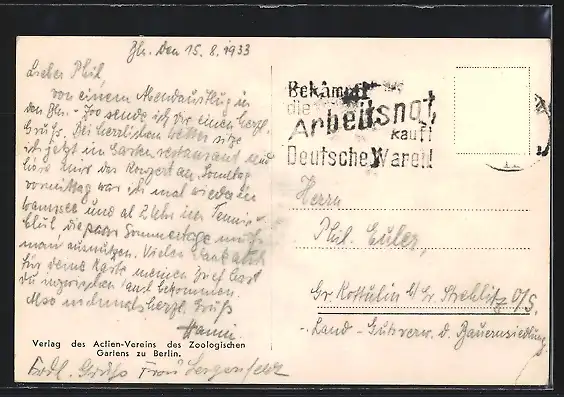 Bln. den 15.8.1933
Lieber Phil,
von einem Abendausflug in
den Bln.-Zoo sende ich Dir einen herzl.
Gruß. Bei herrlichem Wetter sitze
ich jetzt im Gartenrestaurant und
höre mir das Konzert an. Sonntag
vormittag war ich mal wieder in
Wannsee und ab 2 Uhr im Tennis-
club, die paar Sommertage muß
man ausnutzen. Vielen Dank auch
für deine Karte meinen Brief hast
Du inzwischen auch bekommen.
Also nochmals herzl. Gruß
Hanni.
Verlag des Actien-Vereins des Zoologischen
Gartens zu Berlin.
Frdl. Gruß Frau
Bekämpft
die
Arbeitsnot,
kauft
Deutsche Ware!!
Herrn
Phil. Euler,
Gr. Kottulin b/Gr. Strehlitz O/S.
-Land-Gutsverw. d. Bauernsiedlung